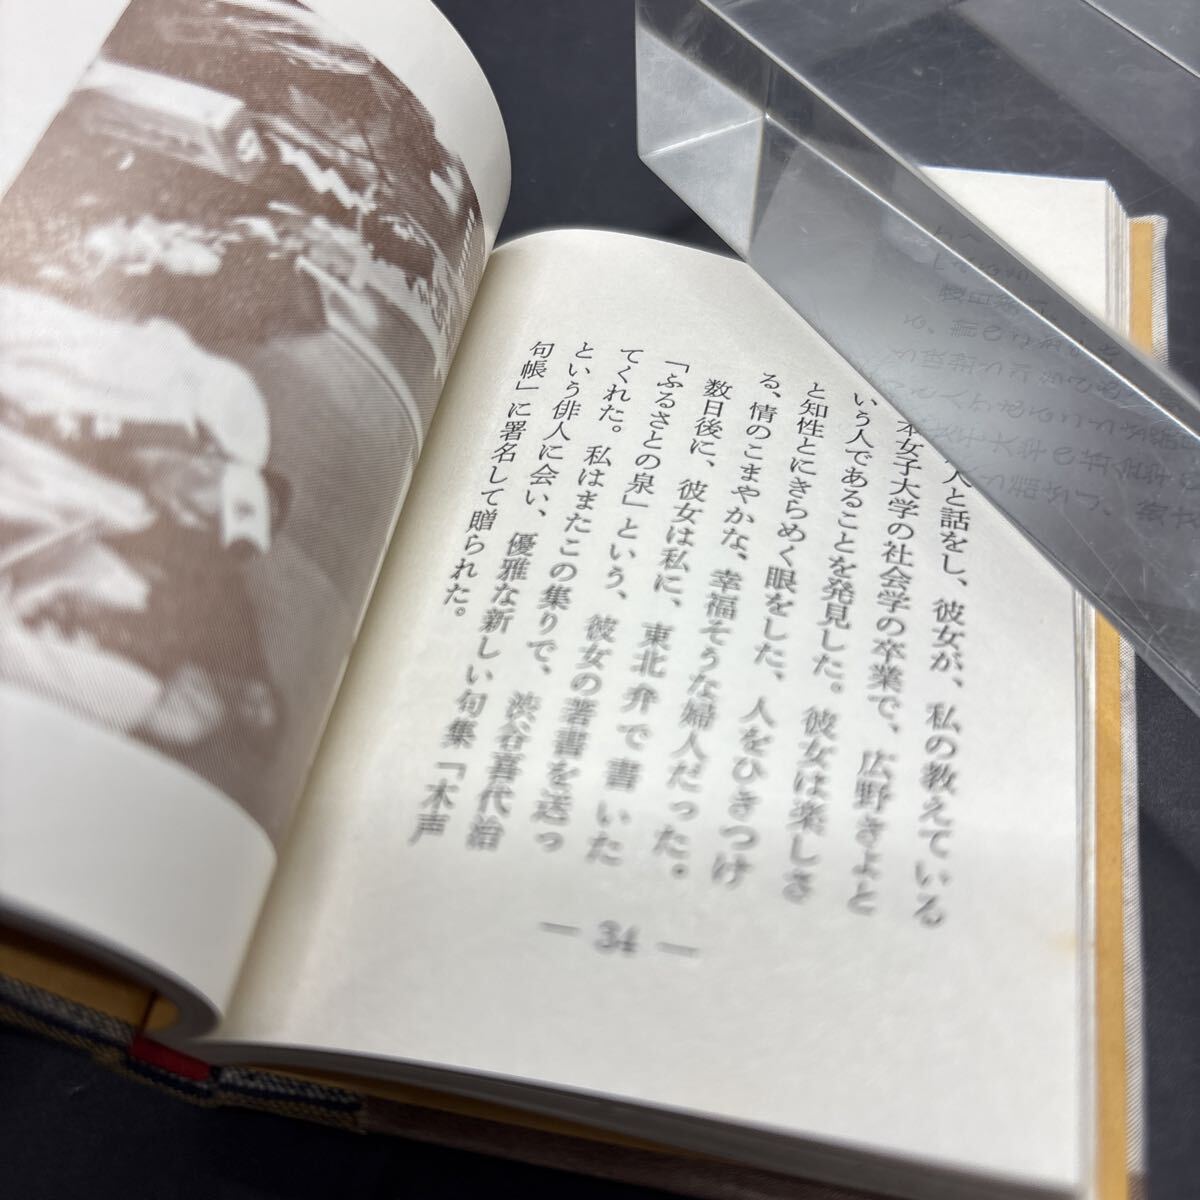 人と話をし、彼女が、私の教えている
本女子大学の社会学の卒業で、広野きよと
いう人であることを発見した。彼女は楽しさ
と知性とにきらめく眼をした、人をひきつけ
る、情のこまやかな、幸福そうな婦人だった。
数日後に、彼女は私に、東北弁で書いた
「ふるさとの泉」という、彼女の著書を送っ
てくれた。私はまたこの集りで、渋谷喜代治
という俳人に会い、優雅な新しい句集「木声
句帳」に署名して贈られた。
— 34 —